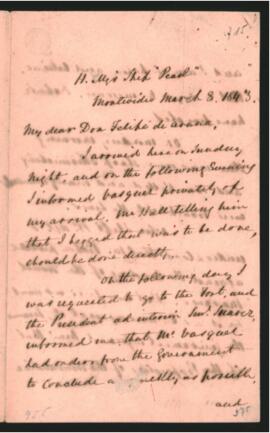 H. My's Ship "Pearl"
Montevideo March 8. 1843.
My dear Don Felipe de Arana,
I arrived here on Sunday
night, and on the following Evening
I informed Vasquez privately of
my arrival. Mr Hall telling him
that I begged that was to be done,
should be done directly.
On the following day I
was requested to go to the Fort, and
the President ad interim Snr. Suarez,
informed me, that Mr Vasquez
had orders from the Government
to conclude as possible,
and